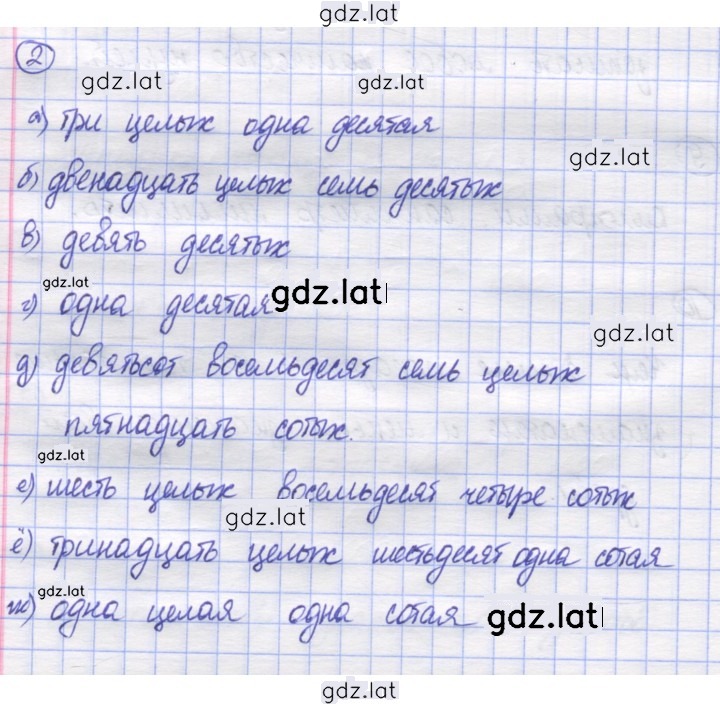 gdz.lat
2
gdz.lat gdz.lat
а) три целых одна десятая
gdz.lat
б) двенадцать целых семь десятых
в) девять десятых
gdz.lat
г) одна десятая gdz.lat
gdz.lat
д) девятьсот восемьдесят семь целых
пятнадцать сотых.
gdz.lat
е) шесть целых восемьдесят четыре сотых
gdz.lat
ё) тринадцать целых шестьдесят одна сотая
gdz.lat
ж) одна целая одна сотая gdz.lat
gdz.lat